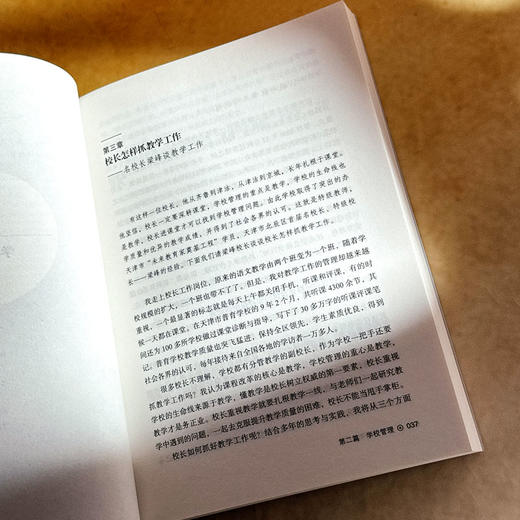 第三章
校长怎样抓教学工作
——名校长梁峰谈教学工作
有这样一位校长，他从齐鲁到津法，从津法到京城，长年扎根于课堂。
他坚信，校长一定要深耕课堂，学校管理的重点是教学，学校的生命线也
是教学，校长进课堂才可以找到学校管理问题。由此学校取得了突出的办
学质量和优异的教学成绩，并得到了社会各界的认可。这就是特级教师、
天津市“未来教育家奠基工程”学员、天津市北辰区首届名校长、特级校
长——梁峰的经验。下面我们请梁峰校长谈谈校长怎样抓教学工作。
我走上校长工作岗位，原来的语文教学由两个班变为一个班，随着学
校规模的扩大，一个班也带不了了。但是，我对教学工作的管理却越来越
重视，一个最显著的标志就是每天上午都关闭手机，听课和评课，有的时
候一天都在课堂。在天津市普育学校的 9 年 2 个月，共听课 4300 余节，其
间还为 100 多所学校做过课堂诊断与指导，写下了 30 多万字的听课评课笔
记。普育学校教学质量也突飞猛进、保持全区领先，学生素质优良，得到
社会各界的认可，每年接待来自全国各地的学访者一万多人。
很多校长不理解，学校都有分管教学的副校长，作为学校一把手还要
抓教学工作吗？我认为课程改革的核心是教学，学校管理的重心是教学，
学校的生命来源于教学，懂教学是校长树立权威的第一要素，校长重视
教学才是务正业。校长重视教学就要扎根教学一线，与老师们一起研究教
学中遇到的问题，一起去克服提升教学质量的困难，校长不能当甩手掌柜。
校长如何抓好教学工作呢？结合多年的思考与实践，我将从三个方面
第二篇 学校管理 037